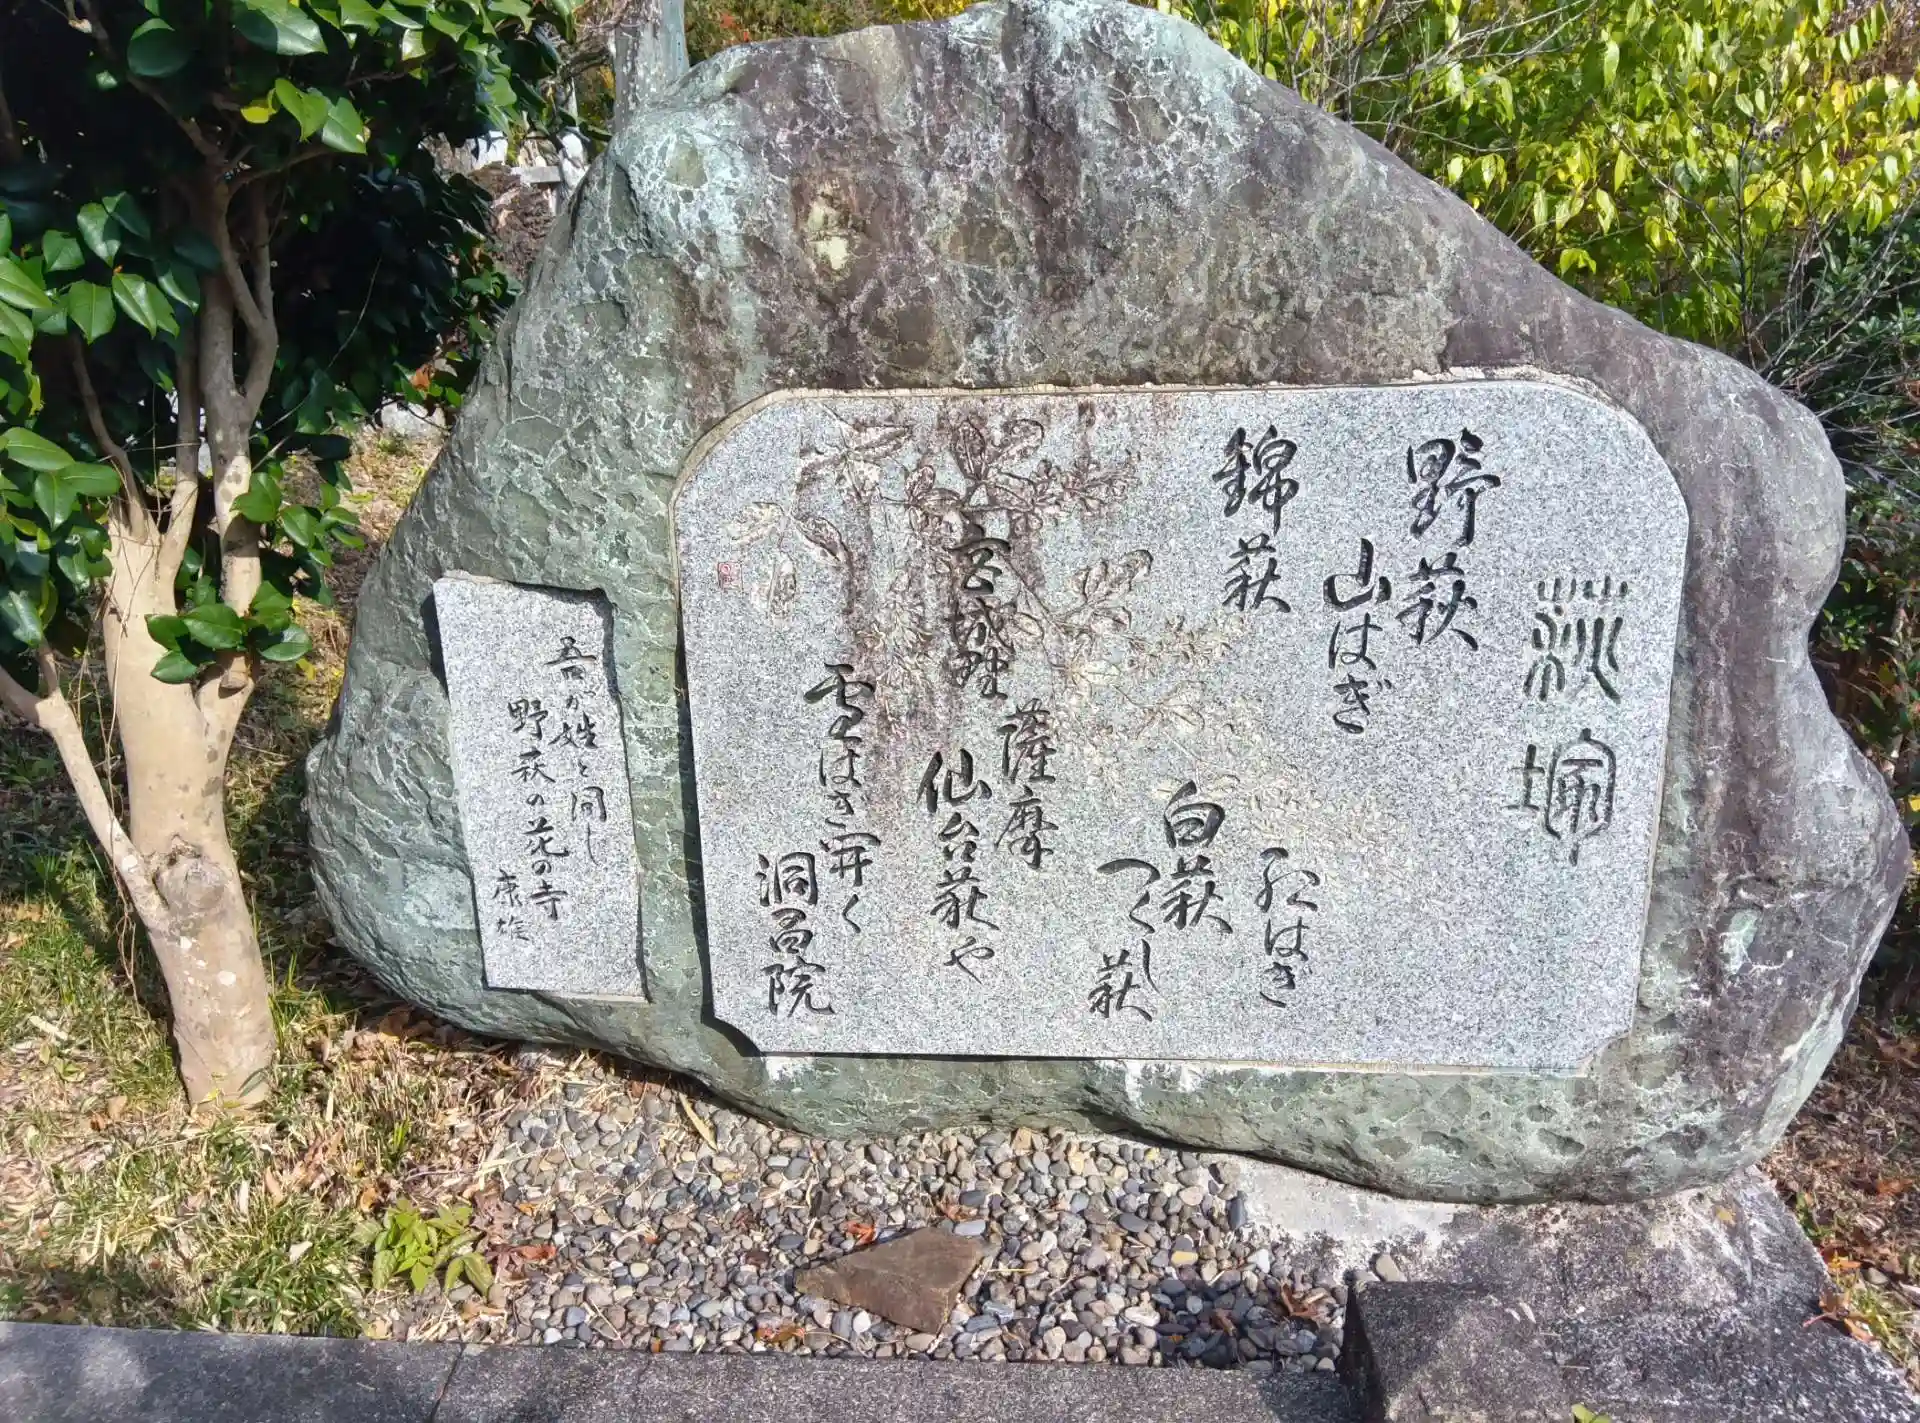 萩塚
野萩
山はぎ
錦萩
紅はぎ
白萩
つくし萩
薩摩
宮城野
仙台萩や
雪はぎ開く
洞昌院
吾が姓と同じ
野萩の花の寺
康雄